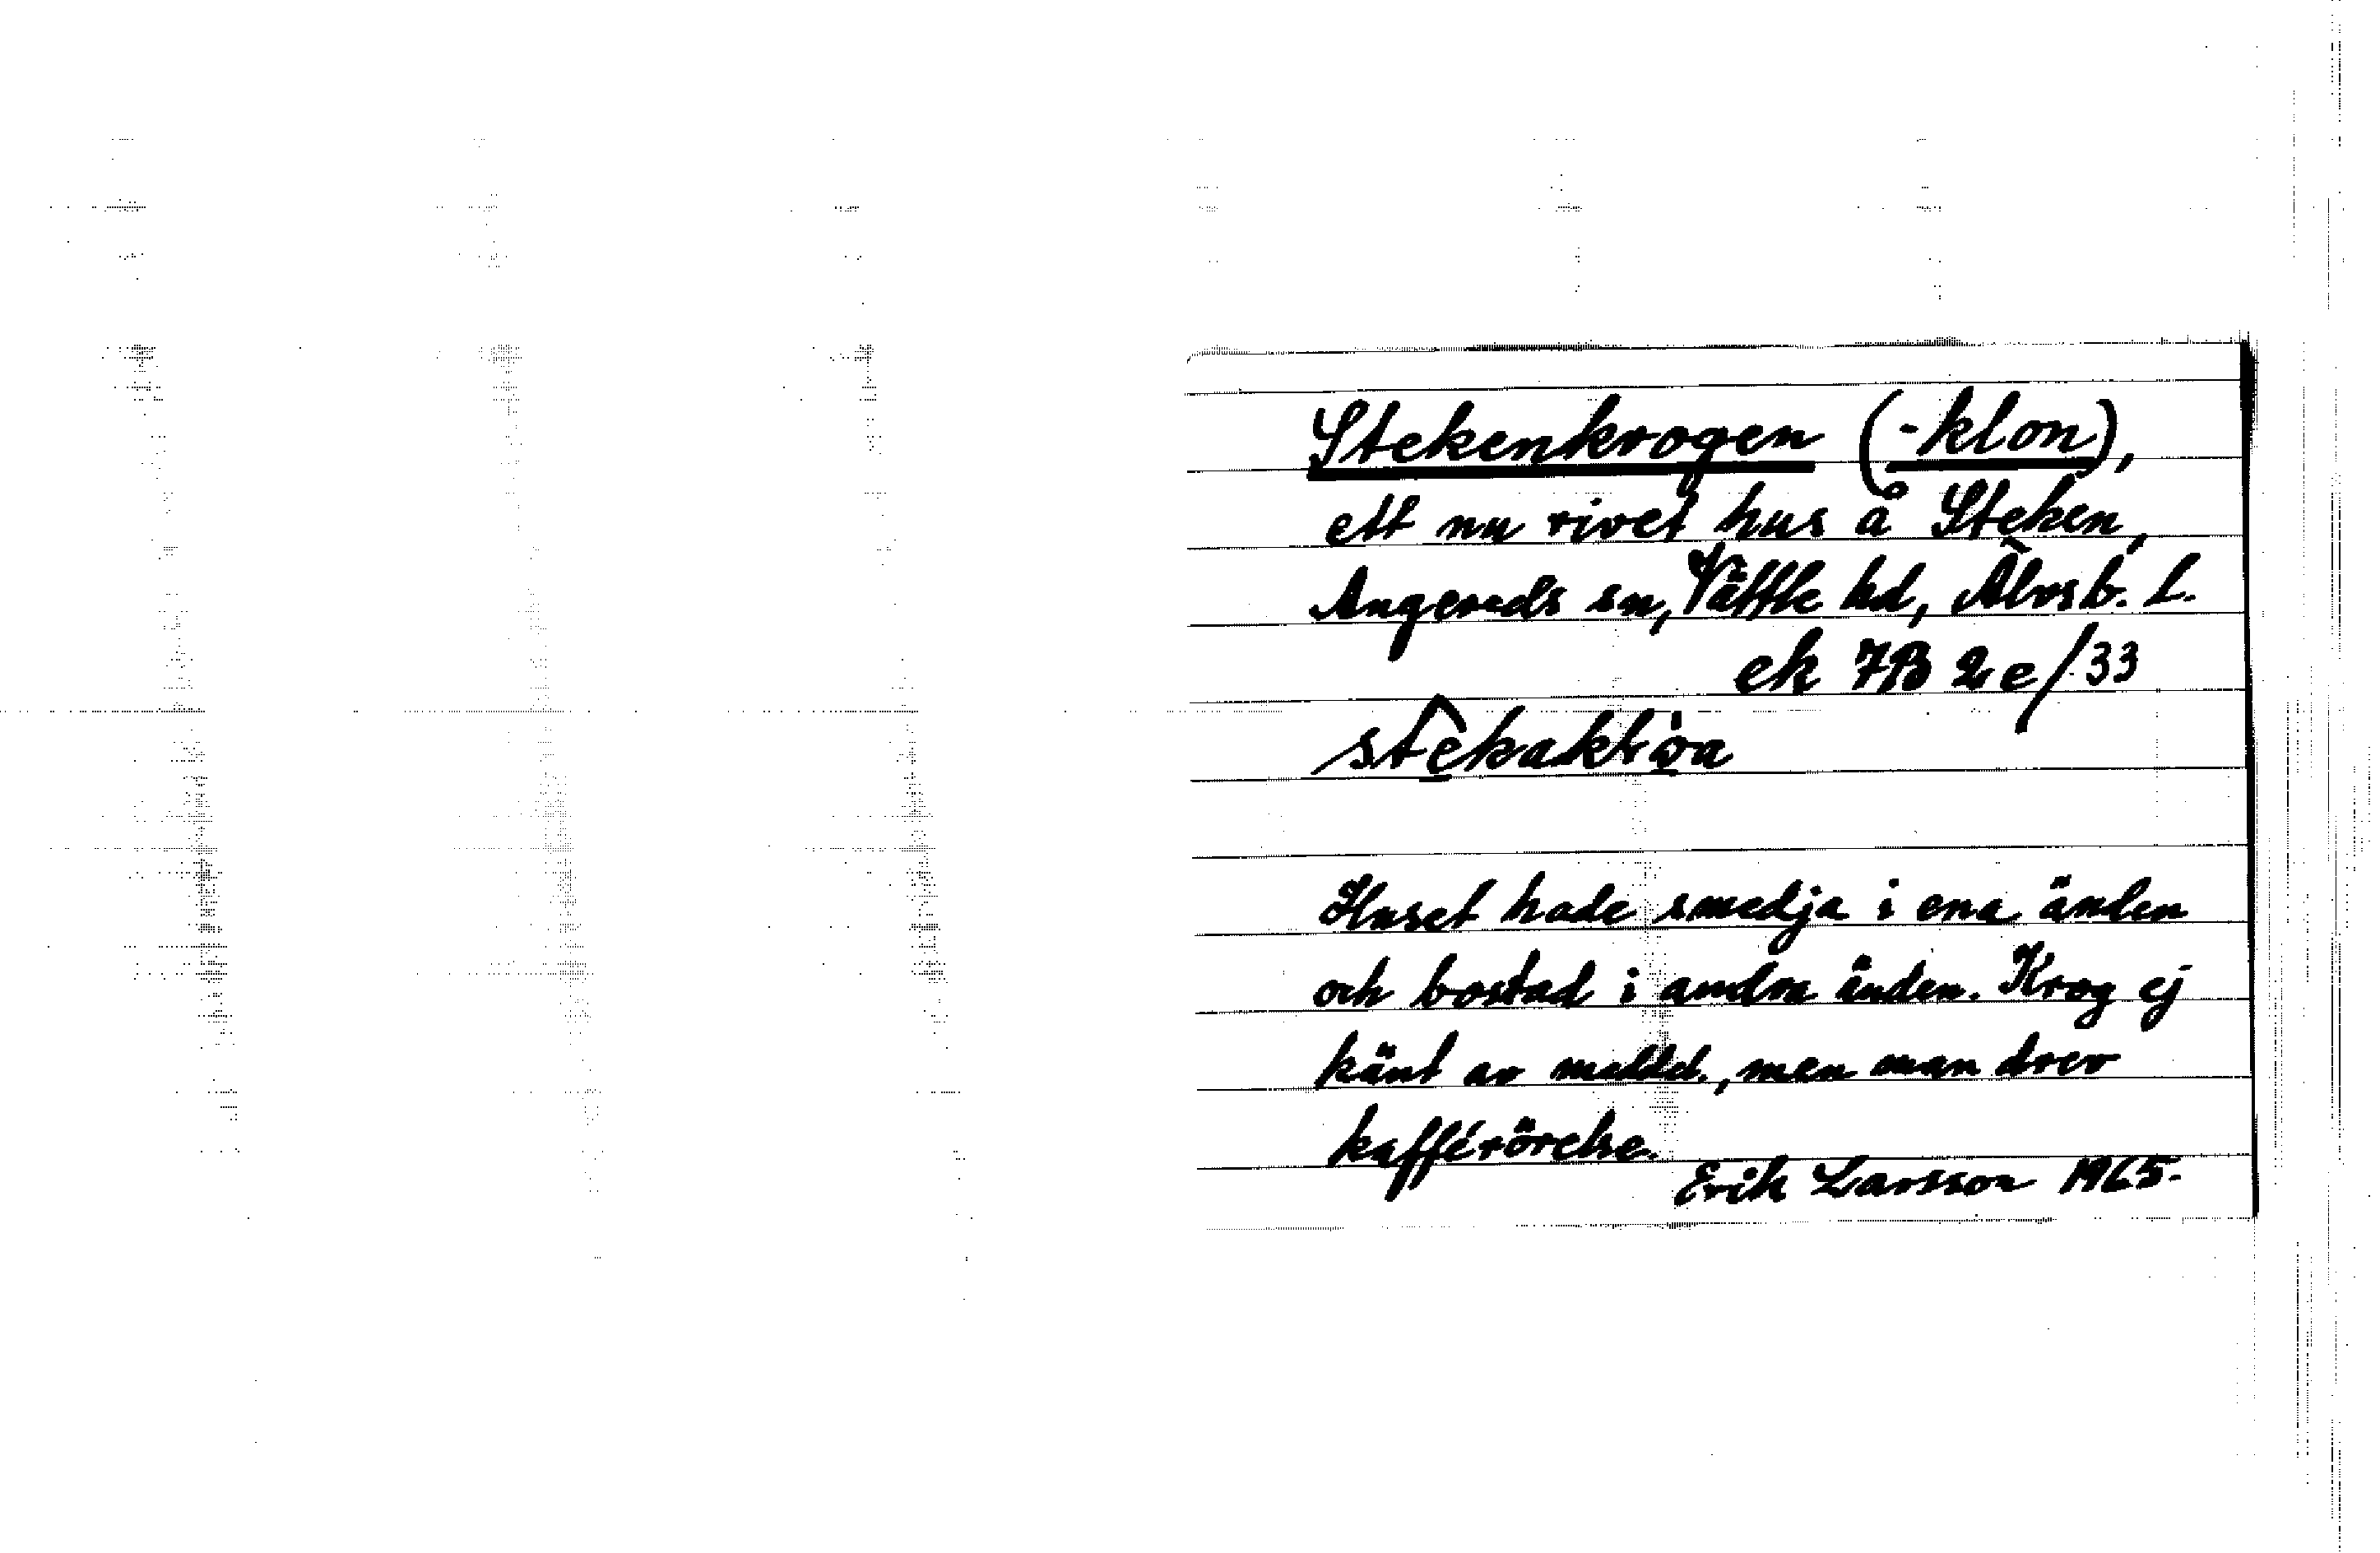 Stekenkrogen (-klon),
ett nu rivet hus å Steken,
Angereds sn, Vättle hd, Älvsb. L.
ek 7B 2e/33
Huset hade smedja i ena änden
och bostad i andra änden. Krog ej
känt av meddel., men man drev
kafférörelse.
Erik Larsson 1965.